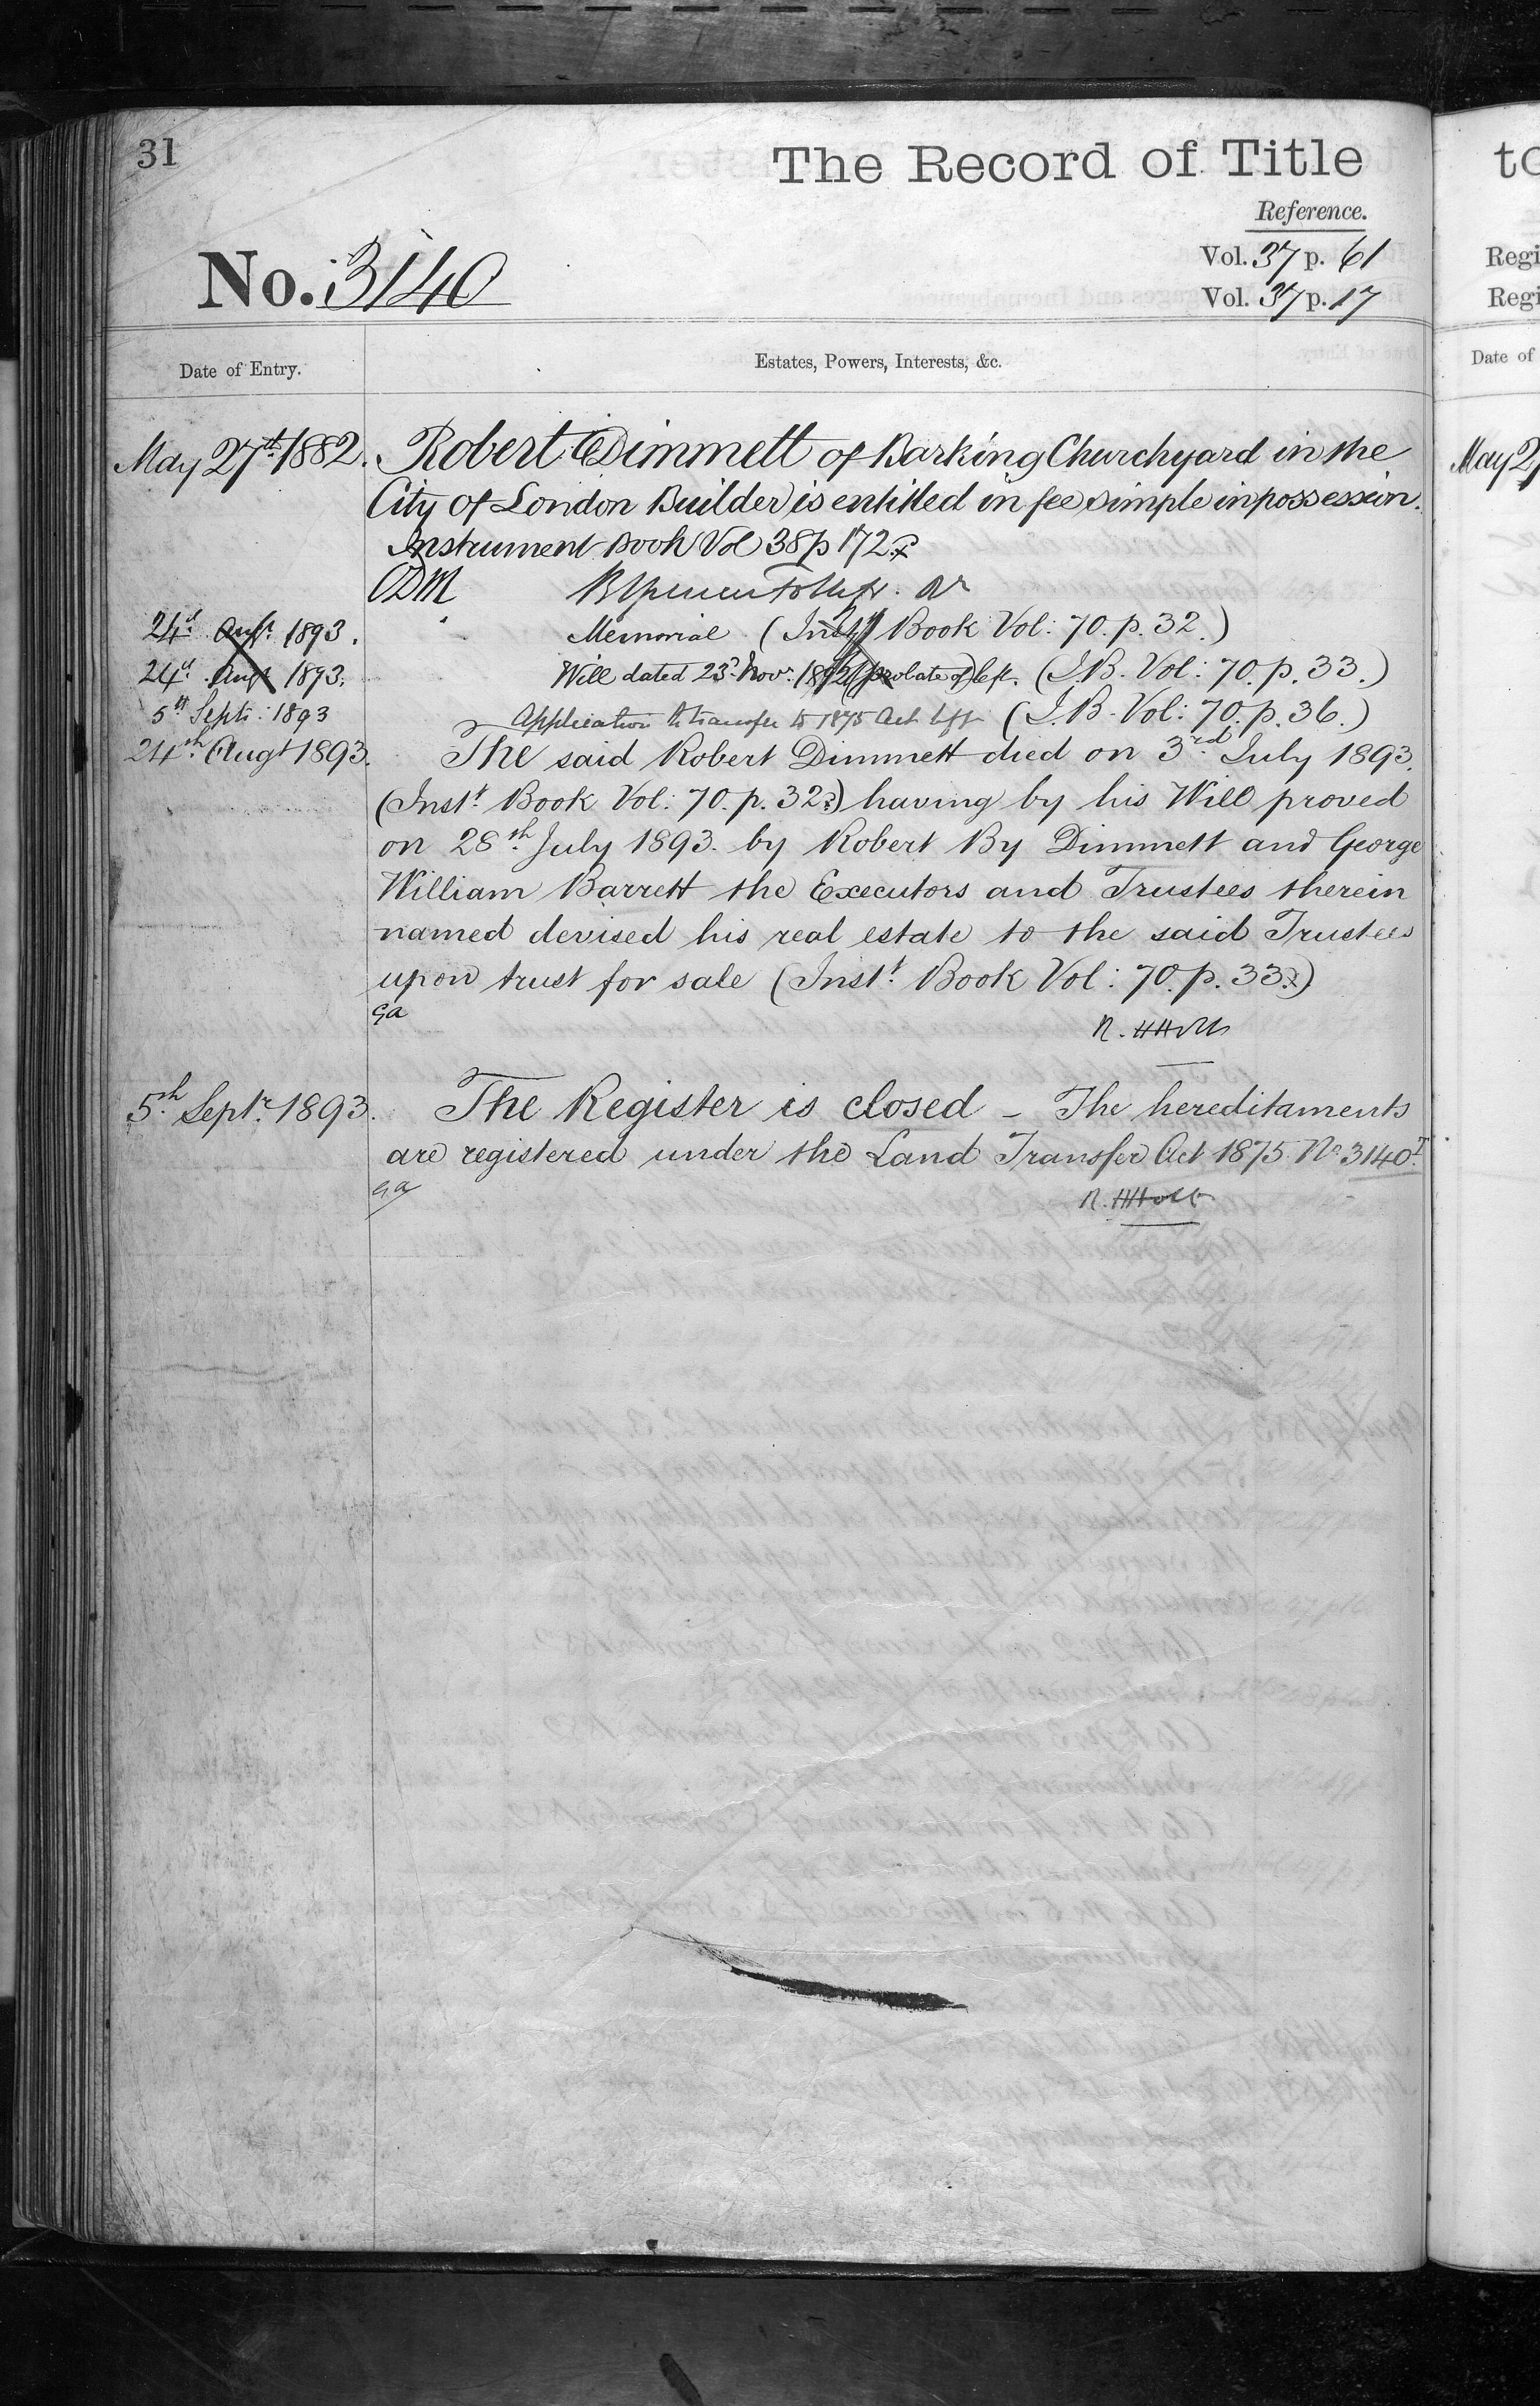 31
The Record of Title
to
Reference.
No. 3140
Vol. 37 p. 61
Regi
Vol. 37 p. 17
Regi
Date of Entry.
Estates, Powers, Interests, &c.
Date of
May 27th 1882. Robert Dimmett of Barking Churchyard in the
May 2
City of London Builder is entitled in fee simple in possession.
Instrument Book Vol 38 p 172
ODM
24th Augt. 1893. Memorial (Inst Book Vol: 70. p. 32.)
24th Augt 1893. Will dated 23rd Novr. 1892 (probate of) left. (I.B. Vol: 70. p. 33.)
5th Septr: 1893 Application to transfer to 1875 Act left (I.B. Vol: 70. p. 36.)
24th Augt 1893. The said Robert Dimmett died on 3rd July 1893.
(Instt. Book Vol: 70. p. 32) having by his Will proved
on 28th July 1893. by Robert By Dimmett and George
William Barrett the Executors and Trustees therein
named devised his real estate to the said Trustees
upon trust for sale (Instt. Book Vol: 70. p. 33)
Ga
R. H Holt
5th Septr. 1893. The Register is closed – The hereditaments
are registered under the Land Transfer Act 1875 No. 3140T.
Ga
R. H Holt